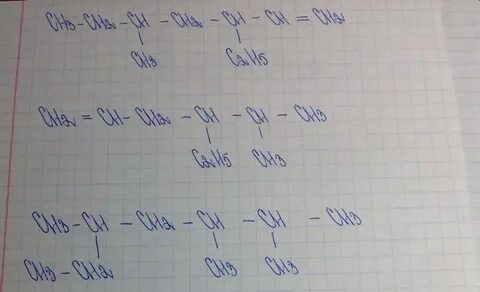 CH3-CH2-CH - CH2 - CH - CH = CH2
CH3 C2H5
CH2 = CH - CH2 - CH - CH - CH3
C2H5 CH3
CH3-CH - CH2 - CH - CH - CH3
CH3-CH2 CH3 CH3